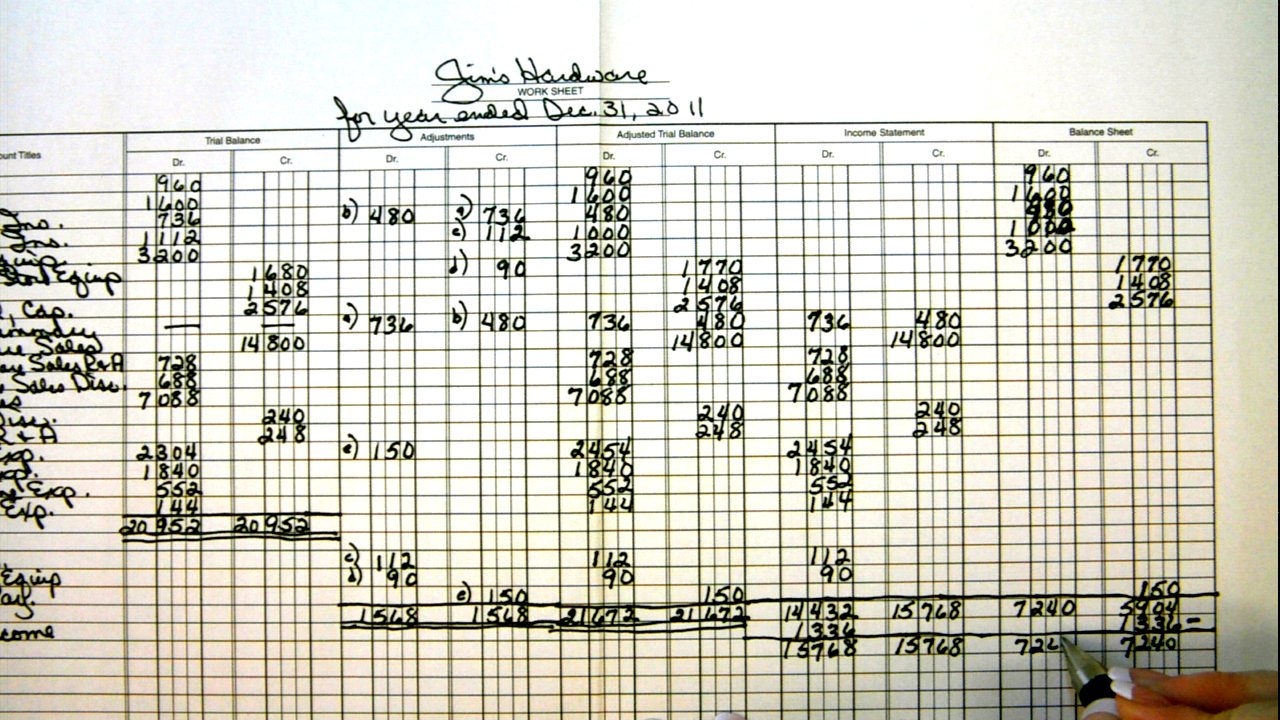 Jim's Hardware
WORK SHEET
for year ended Dec. 31, 2011
ount Titles Trial Balance Adjustments Adjusted Trial Balance Income Statement Balance Sheet
Dr. Cr. Dr. Cr. Dr. Cr. Dr. Cr. Dr. Cr.
960 960 960
1600 1600 1600
Ins. 736 b) 480 a) 736 480
Ins. 1112 c) 112 1000
Equip. 3200 3200 3200
Store Equip 1680 d) 90 1770 1770
1408 1408 1408
, Cap. 2576 2576 2576
— — a) 736 b) 480 736 480 736 480
Sales 14800 14800 14800
Sales R & A 728 728 728
Sales Disc. 688 688 688
es 7088 7088 7088
Disc. 240 240 240
R & A 248 248 248
Exp. 2304 e) 150 2454 2454
xp. 1840 1840 1840
Exp. 552 552 552
Exp. 144 144 144
20952 20952
c) 112 112 112
Equip d) 90 90 90
Pay. e) 150 150 150
1568 1568 21672 21672 14432 15768 7240 5904
come 1336 1336 –
15768 15768 724 7240